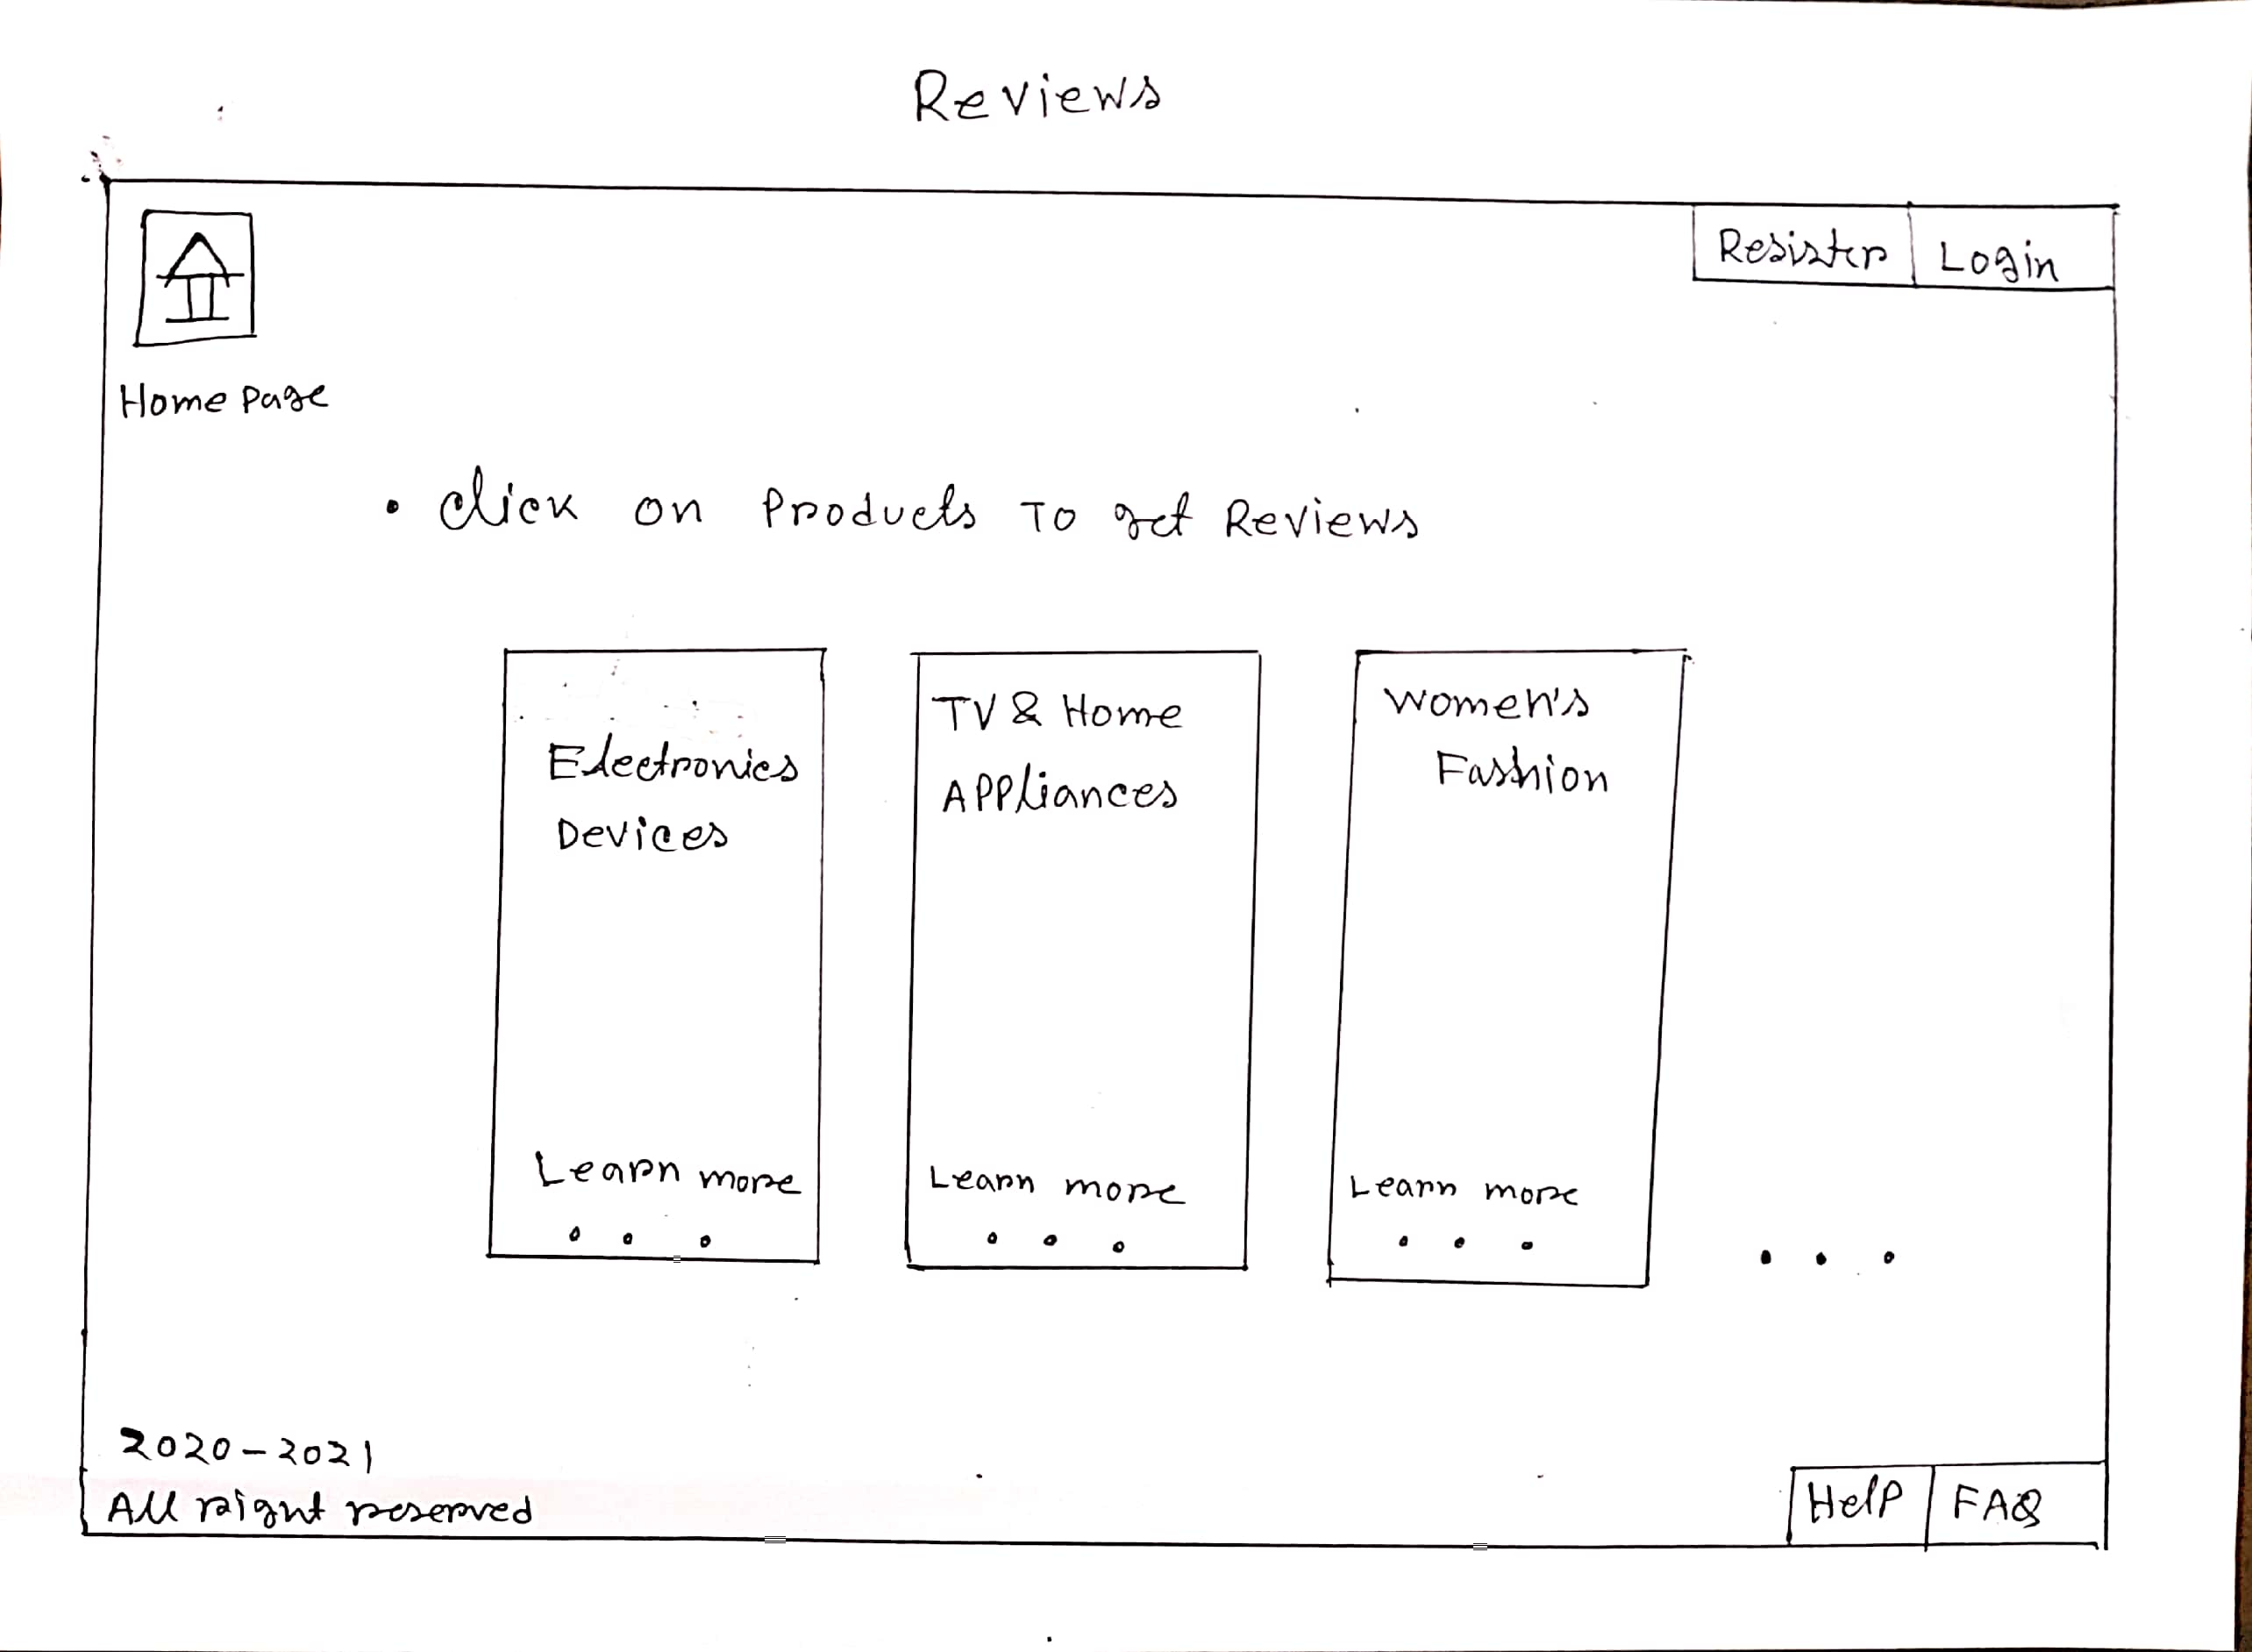 Reviews
Resister Login
Home Page
• Click on Products To get Reviews
Electronics
Devices
Learn more
TV & Home
Appliances
Learn more
Women's
Fashion
Learn more
2020-2021
All right reserved
Help FAQ